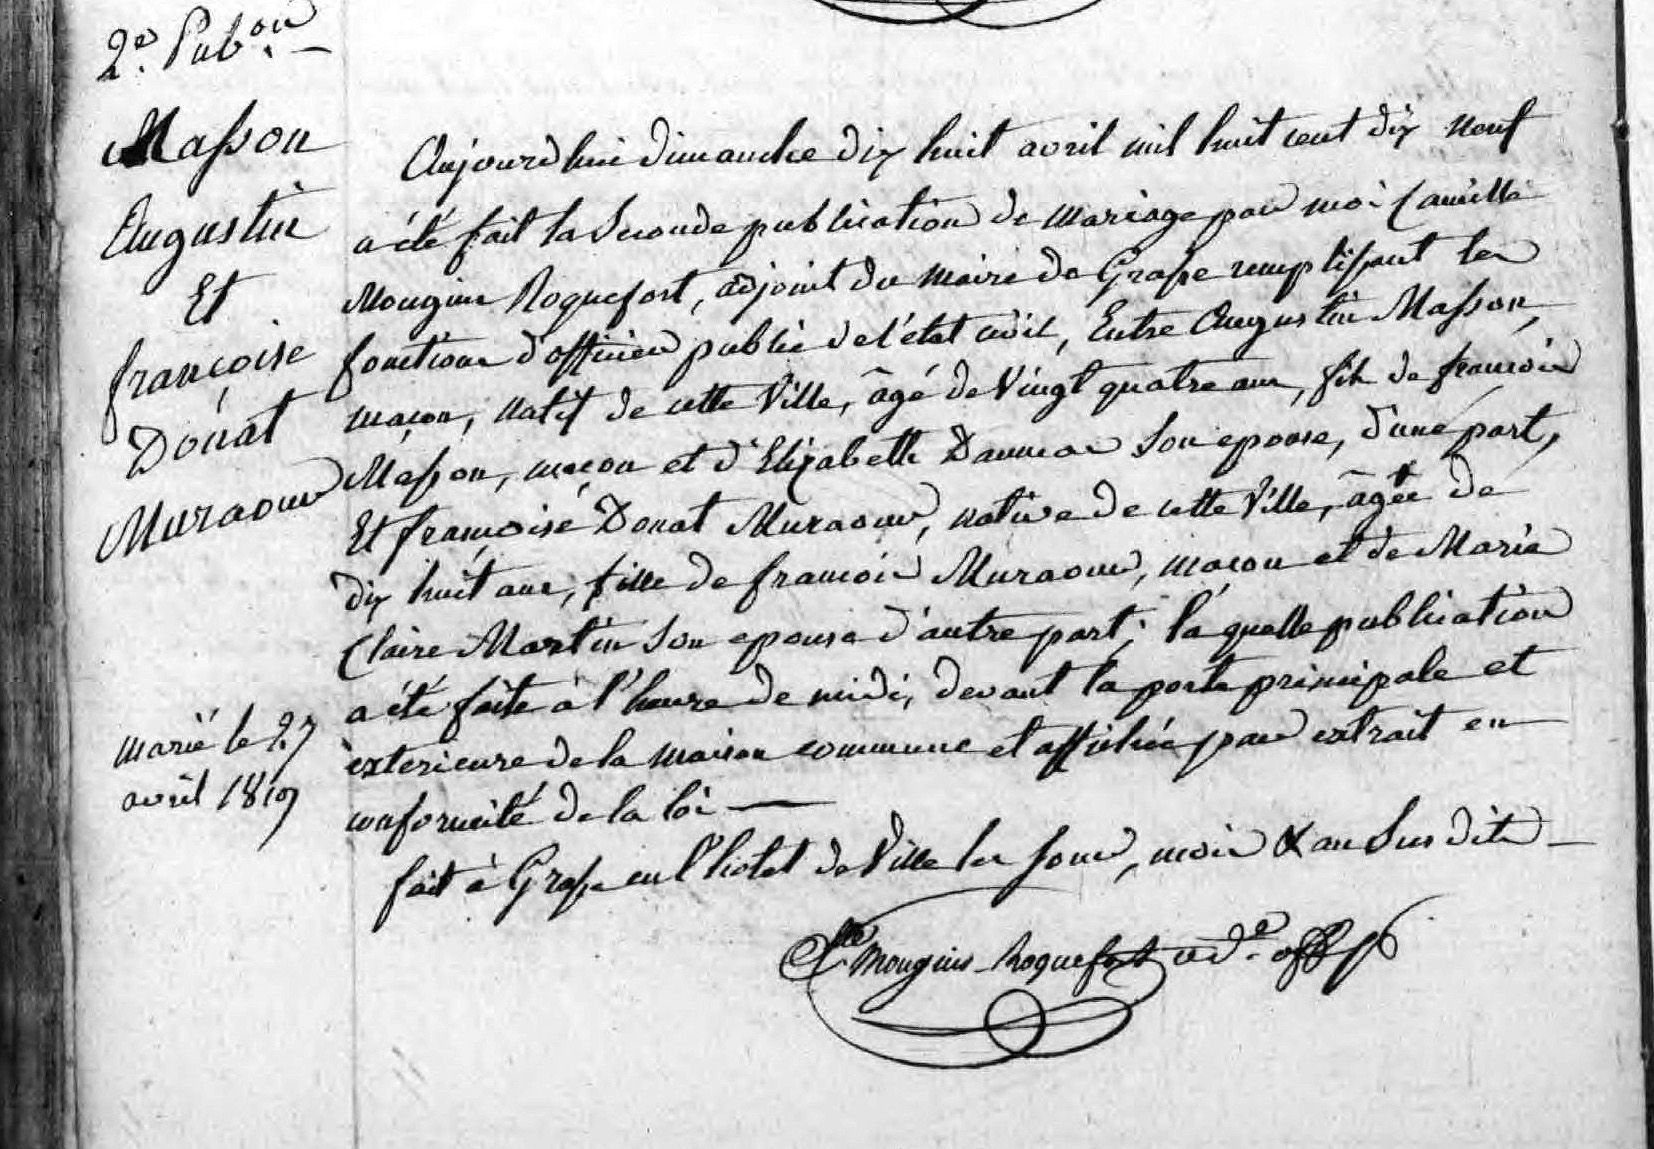 2e. Pubon. —
Masson
Augustin
Et
françoise
Donat
Muraour
marié le 27
avril 1819
Aujourdhui dimanche dix huit avril mil huit cent dix neuf
a été fait la Seconde publication de mariage par moi Camille
Mougins Roquefort, adjoint du maire de Grasse remplissant les
fonctions d'officier public de l'état civil, Entre Augustin Masson,
maçon, natif de cette Ville, âgé de Vingt quatre ans, fils de françois
Masson, maçon et d'Elizabeth Daumas Son epouse, d'une part,
Et françoise Donat Muraour, native de cette Ville, âgée de
dix huit ans, fille de françois Muraour, maçon et de Marie
Claire Martin Son epouse d'autre part; la quelle publication
a été faite à l'heure de midi, devant la porte principale et
exterieure de la maison commune et affichée par extrait en
conformité de la loi —
fait à Grasse en l'hotel de Ville les Jour, mois & an Sus dits —
Clle Mougins-Roquefort adt. off p